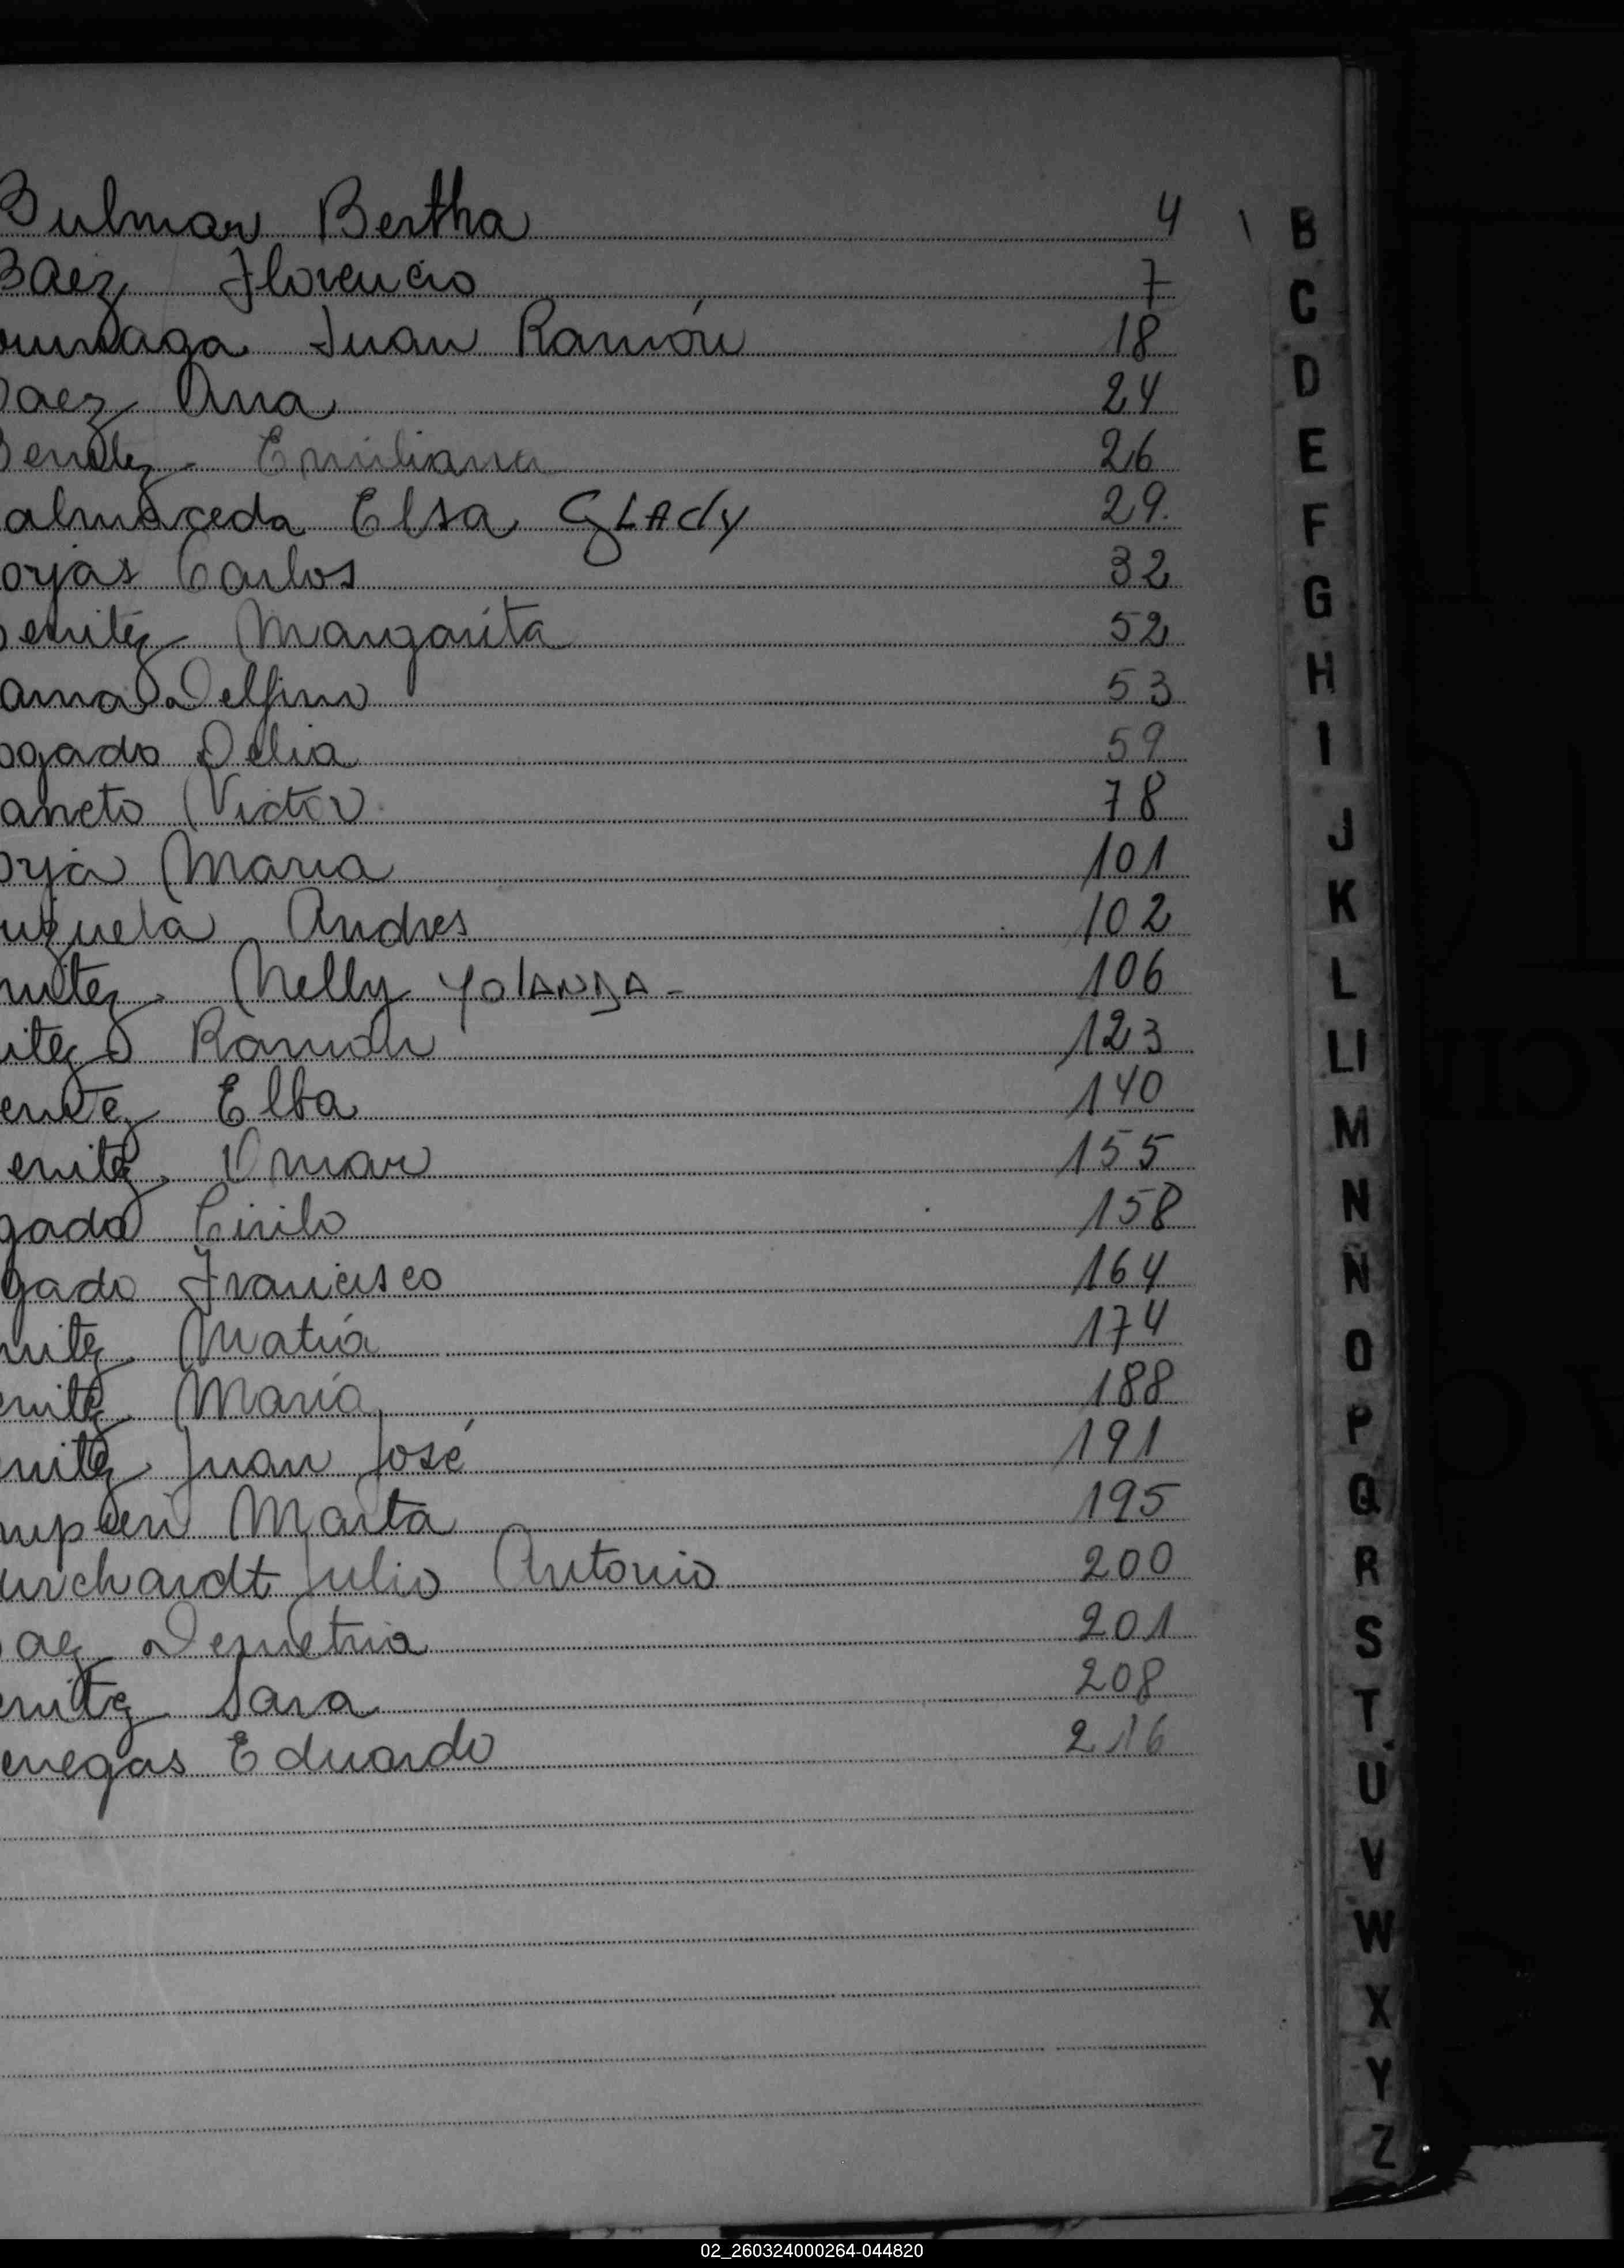 Bulmar Bertha 4
Baez Florencio 7
Juan Ramón 18
aez Ana 24
Benitez Emiliana 26
almaceda Elsa GLAdy 29.
orjas Carlos 32
enitez Margarita 52
Delfino 53
ogado Delia 59
aneto Victor 78
orja Maria 101
Andres 102
nitez Nelly YolANDA - 106
itez Ramón 123
enitez Elba 140
enitez Omar 155
gado Cirilo 158
gado Francisco 164
nitez Matia 174
enitez María 188
enitez Juan José 191
Marta 195
urchardt Julio Antonio 200
aez Demetria 201
enitez Sara 208
enegas Eduardo 216
B
C
D
E
F
G
H
I
J
K
L
Ll
M
N
Ñ
O
P
Q
R
S
T
U
V
W
X
Y
Z
02_260324000264-044820